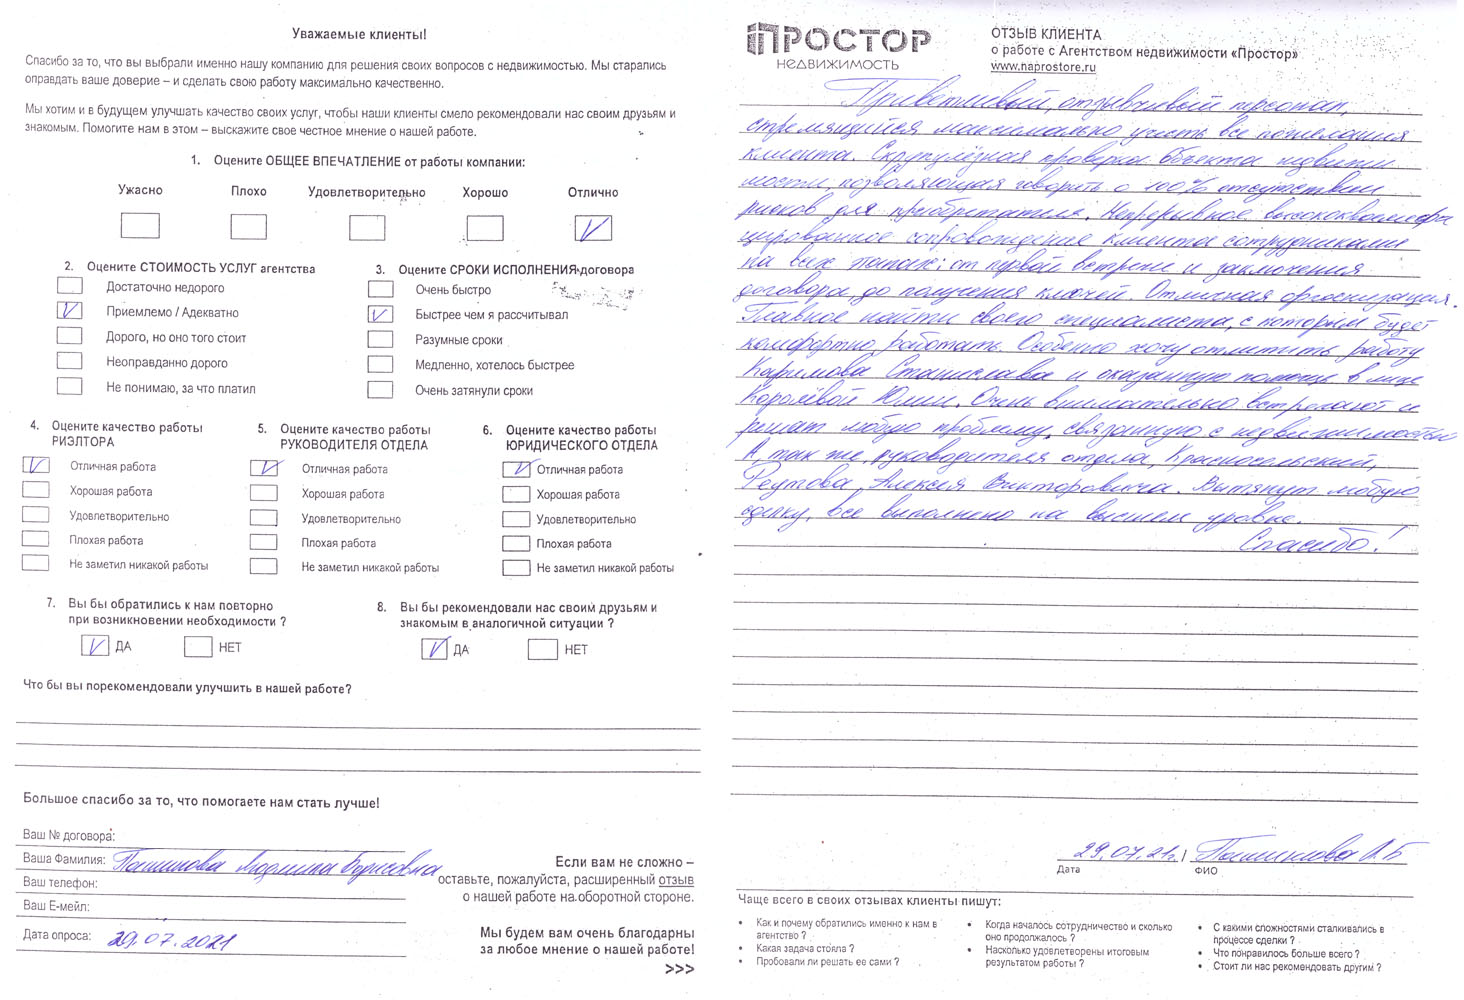 Уважаемые клиенты!
Спасибо за то, что вы выбрали именно нашу компанию для решения своих вопросов с недвижимостью. Мы старались
оправдать ваше доверие – и сделать свою работу максимально качественно.
Мы хотим и в будущем улучшать качество своих услуг, чтобы наши клиенты смело рекомендовали нас своим друзьям и
знакомым. Помогите нам в этом – выскажите свое честное мнение о нашей работе.
1. Оцените ОБЩЕЕ ВПЕЧАТЛЕНИЕ от работы компании:
Ужасно Плохо Удовлетворительно Хорошо Отлично
2. Оцените СТОИМОСТЬ УСЛУГ агентства
Достаточно недорого
Приемлемо / Адекватно
Дорого, но оно того стоит
Неоправданно дорого
Не понимаю, за что платил
3. Оцените СРОКИ ИСПОЛНЕНИЯ договора
Очень быстро
Быстрее чем я рассчитывал
Разумные сроки
Медленно, хотелось быстрее
Очень затянули сроки
4. Оцените качество работы
РИЭЛТОРА
Отличная работа
Хорошая работа
Удовлетворительно
Плохая работа
Не заметил никакой работы
5. Оцените качество работы
РУКОВОДИТЕЛЯ ОТДЕЛА
Отличная работа
Хорошая работа
Удовлетворительно
Плохая работа
Не заметил никакой работы
6. Оцените качество работы
ЮРИДИЧЕСКОГО ОТДЕЛА
Отличная работа
Хорошая работа
Удовлетворительно
Плохая работа
Не заметил никакой работы
7. Вы бы обратились к нам повторно
при возникновении необходимости ?
ДА НЕТ
8. Вы бы рекомендовали нас своим друзьям и
знакомым в аналогичной ситуации ?
ДА НЕТ
Что бы вы порекомендовали улучшить в нашей работе?
Большое спасибо за то, что помогаете нам стать лучше!
Ваш № договора:
Ваша Фамилия: Людмила Борисовна
Ваш телефон:
Ваш Е-мейл:
Дата опроса: 29.07.2021
Если вам не сложно –
оставьте, пожалуйста, расширенный отзыв
о нашей работе на оборотной стороне.
Мы будем вам очень благодарны
за любое мнение о нашей работе!
>>>
ПРОСТОР
НЕДВИЖИМОСТЬ
ОТЗЫВ КЛИЕНТА
о работе с Агентством недвижимости «Простор»
www.naprostore.ru
Приветливый, отзывчивый персонал,
стремящийся максимально учесть все пожелания
клиента. Скрупулёзная проверка объекта недвижи
мости, позволяющая говорить о 100% отсутствии
рисков для приобретателя. Непрерывное высококвалифи
цированное сопровождение клиента сотрудниками
на всех этапах: от первой встречи и заключения
договора до получения ключей. Отличная организация.
Главное найти своего специалиста, с которым будет
комфортно работать. Особенно хочу отметить работу
Каримова Станислава и оказанную помощь в лице
Королёвой Юлии. Очень внимательно встречают и
решат любую проблему, связанную с недвижимостью
А, так же, руководителя отдела, Красносельский,
Реутова Алексея Викторовича. Вытянут любую
сделку, все выполнено на высшем уровне.
Спасибо!
29.07.21г. /
Дата ФИО
Чаще всего в своих отзывах клиенты пишут:
• Как и почему обратились именно к нам в
агентство ?
• Какая задача стояла ?
• Пробовали ли решать ее сами ?
• Когда началось сотрудничество и сколько
оно продолжалось ?
• Насколько удовлетворены итоговым
результатом работы ?
• С какими сложностями сталкивались в
процессе сделки ?
• Что понравилось больше всего ?
• Стоит ли нас рекомендовать другим ?